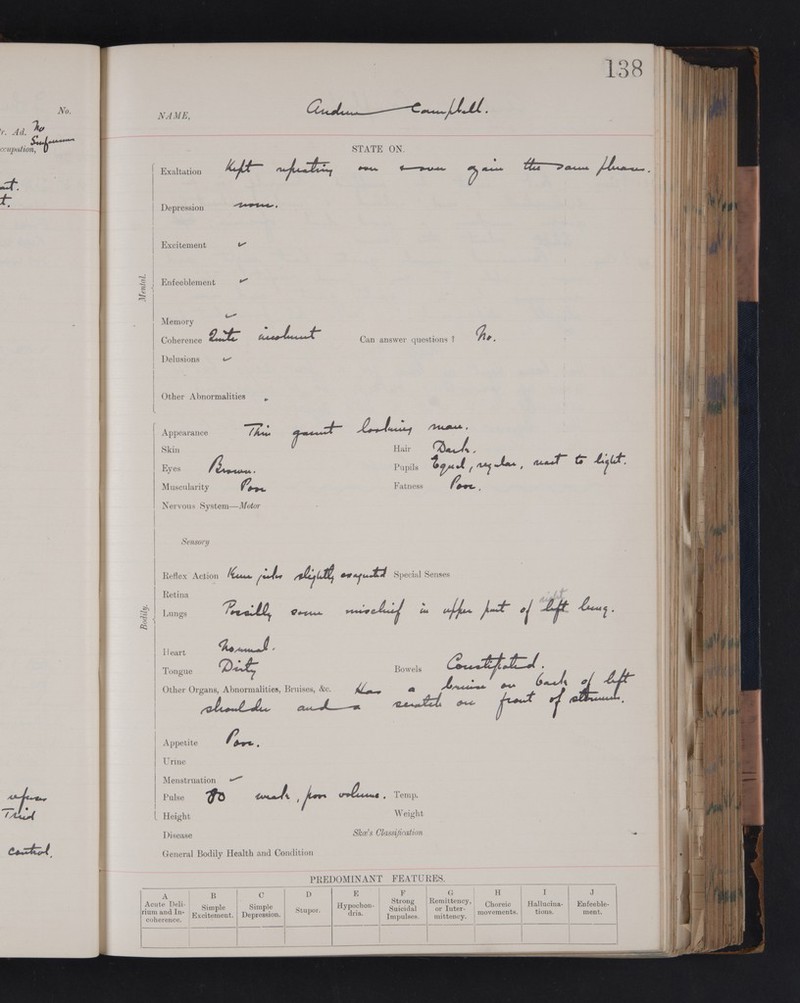 138
No.
NAME, Andrew Campbell.
r. Ad. No
ccupation,
STATE ON.
Mental.
Exaltation Kept repeating over & over again the same phrases.
Depression none.
Excitement ✓
Enfeeblement ✓
Memory ✓
Coherence Quite incoherent Can answer questions? No.
Delusions ✓
Other Abnormalities
Bodily.
Appearance Thin gaunt looking man.
Skin Hair Dark.
Eyes Brown. Pupils Equal, regular, react to light.
Muscularity Poor Fatness Poor.
Nervous System—Motor
Sensory
Reflex Action Knee jerks slightly exaggerated Special Senses
Retina
right
Lungs Possibly some mischief in upper part of left lung.
Heart Normal.
Tongue Dirty Bowels Constipated.
Other Organs, Abnormalities, Bruises, &c. Has a bruise on back of left
shoulder and a scratch on front of sternum.
Appetite Poor.
Urine
Menstruation ✓
Pulse 80 weak, poor volume. Temp.
Height Weight
Disease Skæ's Classification
General Bodily Health and Condition
control.
PREDOMINANT FEATURES.
A B C D E F G H I J
Acute Delirium and Incoherence. Simple Excitement. Simple Depression. Stupor. Hypochondria. Strong Suicidal Impulses. Remittency, or Intermittency. Choreic movements. Hallucinations. Enfeeblement.